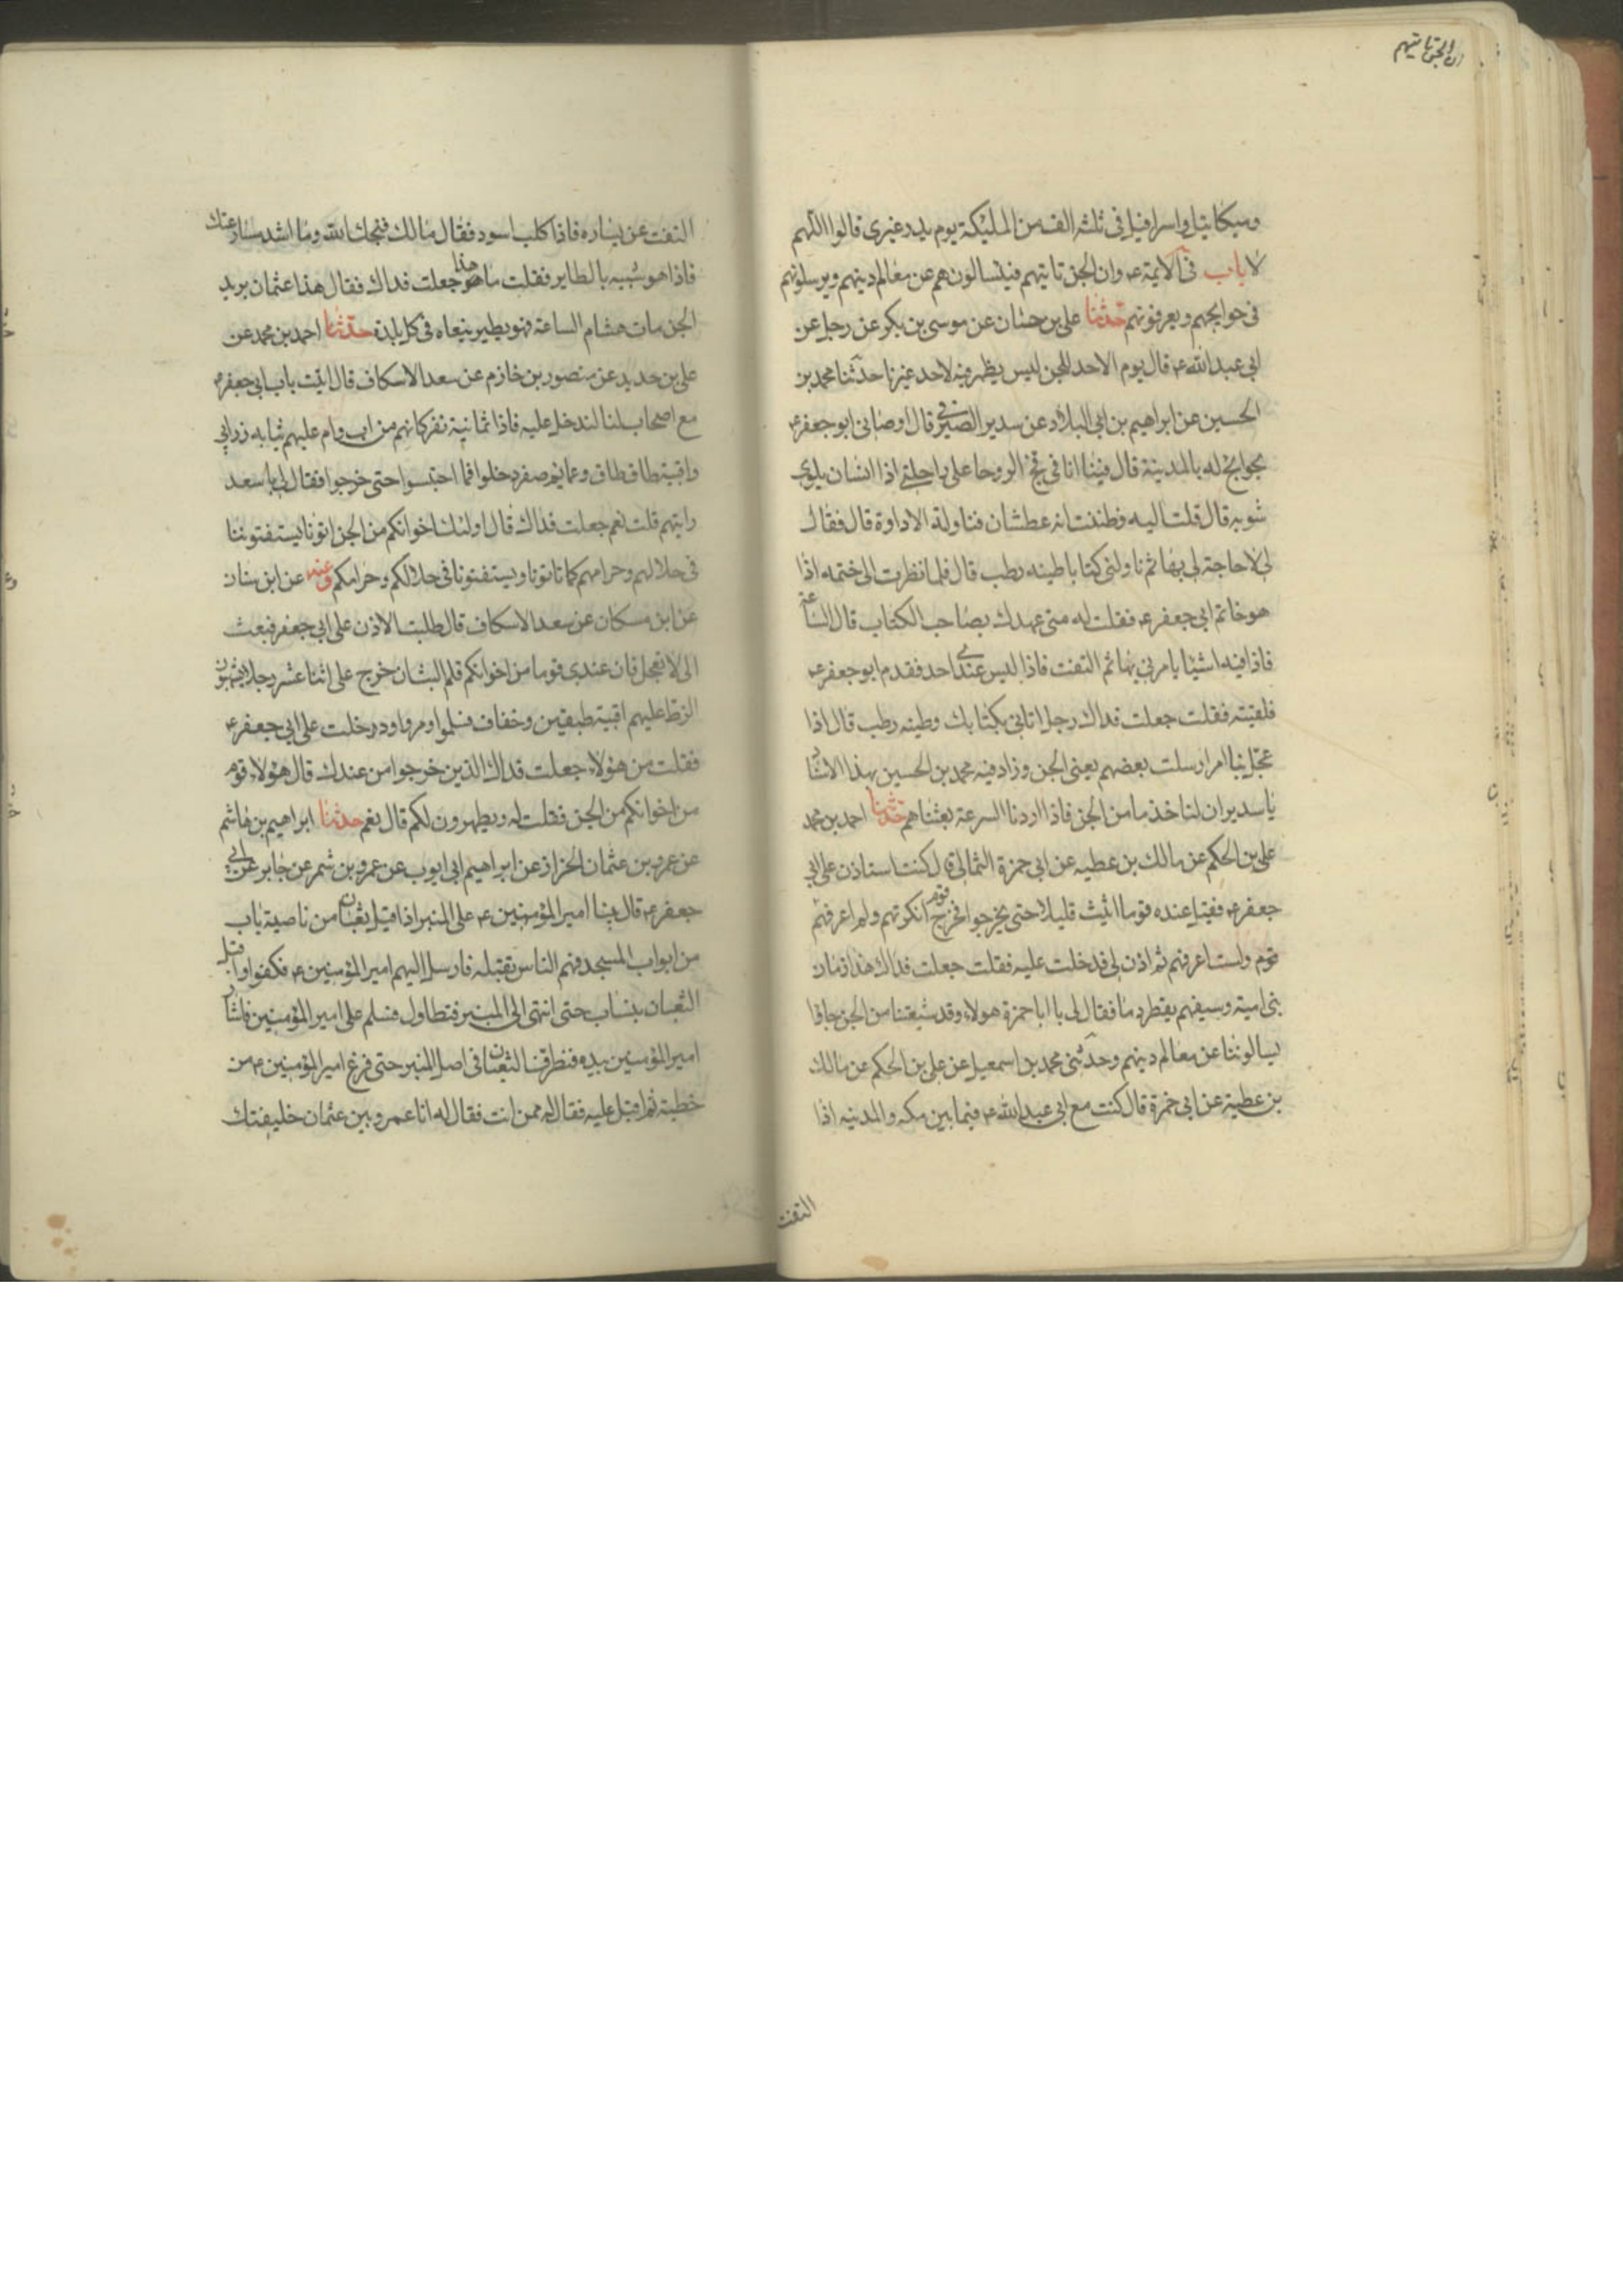 ان الجن تاتيهم
وميكائيل واسرافيل في ثلثة الف من المليكة يوم بدر غيرى قالوا اللهم
لا باب في الايمة ع وان الجن تاتيهم فيسالونهم عن معالم دينهم ويرسلونهم
في حوايجهم ويعرفونهم حدثنا علي بن حسان عن موسى بن بكر عن رجل عن
ابي عبد الله ع قال يوم الاحد للجن ليس يظهر فيه لاحد غيرنا حدثنا محمد بن
الحسين عن ابراهيم بن ابي البلاد عن سدير الصيرفي قال اوصاني ابو جعفر ع
بحوايج له بالمدينة قال فبينا انا في فخ الروحا على راحلتي اذا انسان يلوي
ثوبه قال قلت اليه فظننت انه عطشان فناولته الاداوة قال فقال
لي لا حاجة لي بها ثم ناولني كتابا طينه رطب قال فلما نظرت الى ختمه اذا
هو خاتم ابي جعفر ع فقلت له متى عهدك بصاحب الكتاب قال الساعة
فاذا فيه اشيا يامرني بها ثم التفت فاذا ليس عندي احد فقدم ابو جعفر ع
فلقيته فقلت جعلت فداك رجل اتاني بكتابك وطينه رطب قال اذا
عجل بنا امر ارسلت بعضهم يعني الجن وزاد فيه محمد بن الحسين بهذا الاسنا
يا سدير ان لنا خدما من الجن فاذا اردنا السرعة بعثناهم حدثنا احمد بن محمد
علي بن الحكم عن مالك بن عطيه عن ابي حمزة الثمالي قال كنت استاذن على ابي
جعفر ع فقيل عنده قوم اثبت قليلا حتى يخرجوا فخرج قوم انكرتهم ولم اعرفهم
قوم ولست اعرفهم ثم اذن لي فدخلت عليه فقلت جعلت فداك هذا زمان
بني امية وسيفهم يقطر دما فقال لي يا ابا حمزة هولاء وفد شيعتنا من الجن جاؤا
يسالوننا عن معالم دينهم وحدثني محمد بن اسمعيل عن علي بن الحكم عن مالك
بن عطية عن ابي حمزة قال كنت مع ابي عبد الله ع فيما بين مكه والمدينه اذا
التفت
التفت عن يساره فاذا كلب اسود فقال مالك قبحك الله وما اشد مسارعتك
فاذا هو شبيه بالطاير فقلت ما هو هذا جعلت فداك فقال هذا عثمان بريد
الجن مات هشام الساعة فهو يطير ينعاه في كل بلدة حدثنا احمد بن محمد عن
علي بن حديد عن منصور بن خازم عن سعد الاسكاف قال اتيت باب ابي جعفر ع
مع اصحاب لنا لندخل عليه فاذا ثمانية نفر كانهم من اب وام عليهم ثياب زرابي
واقبية طاق طاق وعمايم صفر دخلوا فما احتبسوا حتى خرجوا فقال لي يا سعد
رايتهم قلت نعم جعلت فداك قال اولئك اخوانكم من الجن اتونا يستفتوننا
في حلالهم وحرامهم كما تاتونا ويستفتونا في حلالكم وحرامكم وعنه عن ابن سنان
عن ابن مسكان عن سعد الاسكاف قال طلبت الاذن على ابي جعفر فبعث
الى لا تعجل فان عندي قوما من اخوانكم فلم البث ان خرج علي اثنا عشر رجلا يشبهون
الزط عليهم اقبية طبقين وخفاف فسلموا ومروا ودخلت على ابي جعفر ع
فقلت من هؤلاء جعلت فداك الذين خرجوا من عندك قال هؤلاء قوم
من اخوانكم من الجن فقلت له ويظهرون لكم قال نعم حدثنا ابراهيم بن هاشم
عن عمرو بن عثمان الخزاز عن ابراهيم ابي ايوب عن عمرو بن شمر عن جابر عن ابي
جعفر ع قال بينا امير المؤمنين ع على المنبر اذ اقبل ثعبان من ناصية باب
من ابواب المسجد فهم الناس تقتله فارسل اليهم امير المؤمنين ع فكفوا واقبل
الثعبان ينساب حتى انتهى الى المنبر فتطاول فسلم على امير المؤمنين فاشار
امير المؤمنين بيده فنظر فنا الثعبان في اصل المنبر حتى فرغ امير المؤمنين ع من
خطبته ثم اقبل عليه فقال له ممن انت فقال له انا عمرو بن عثمان خليفتك